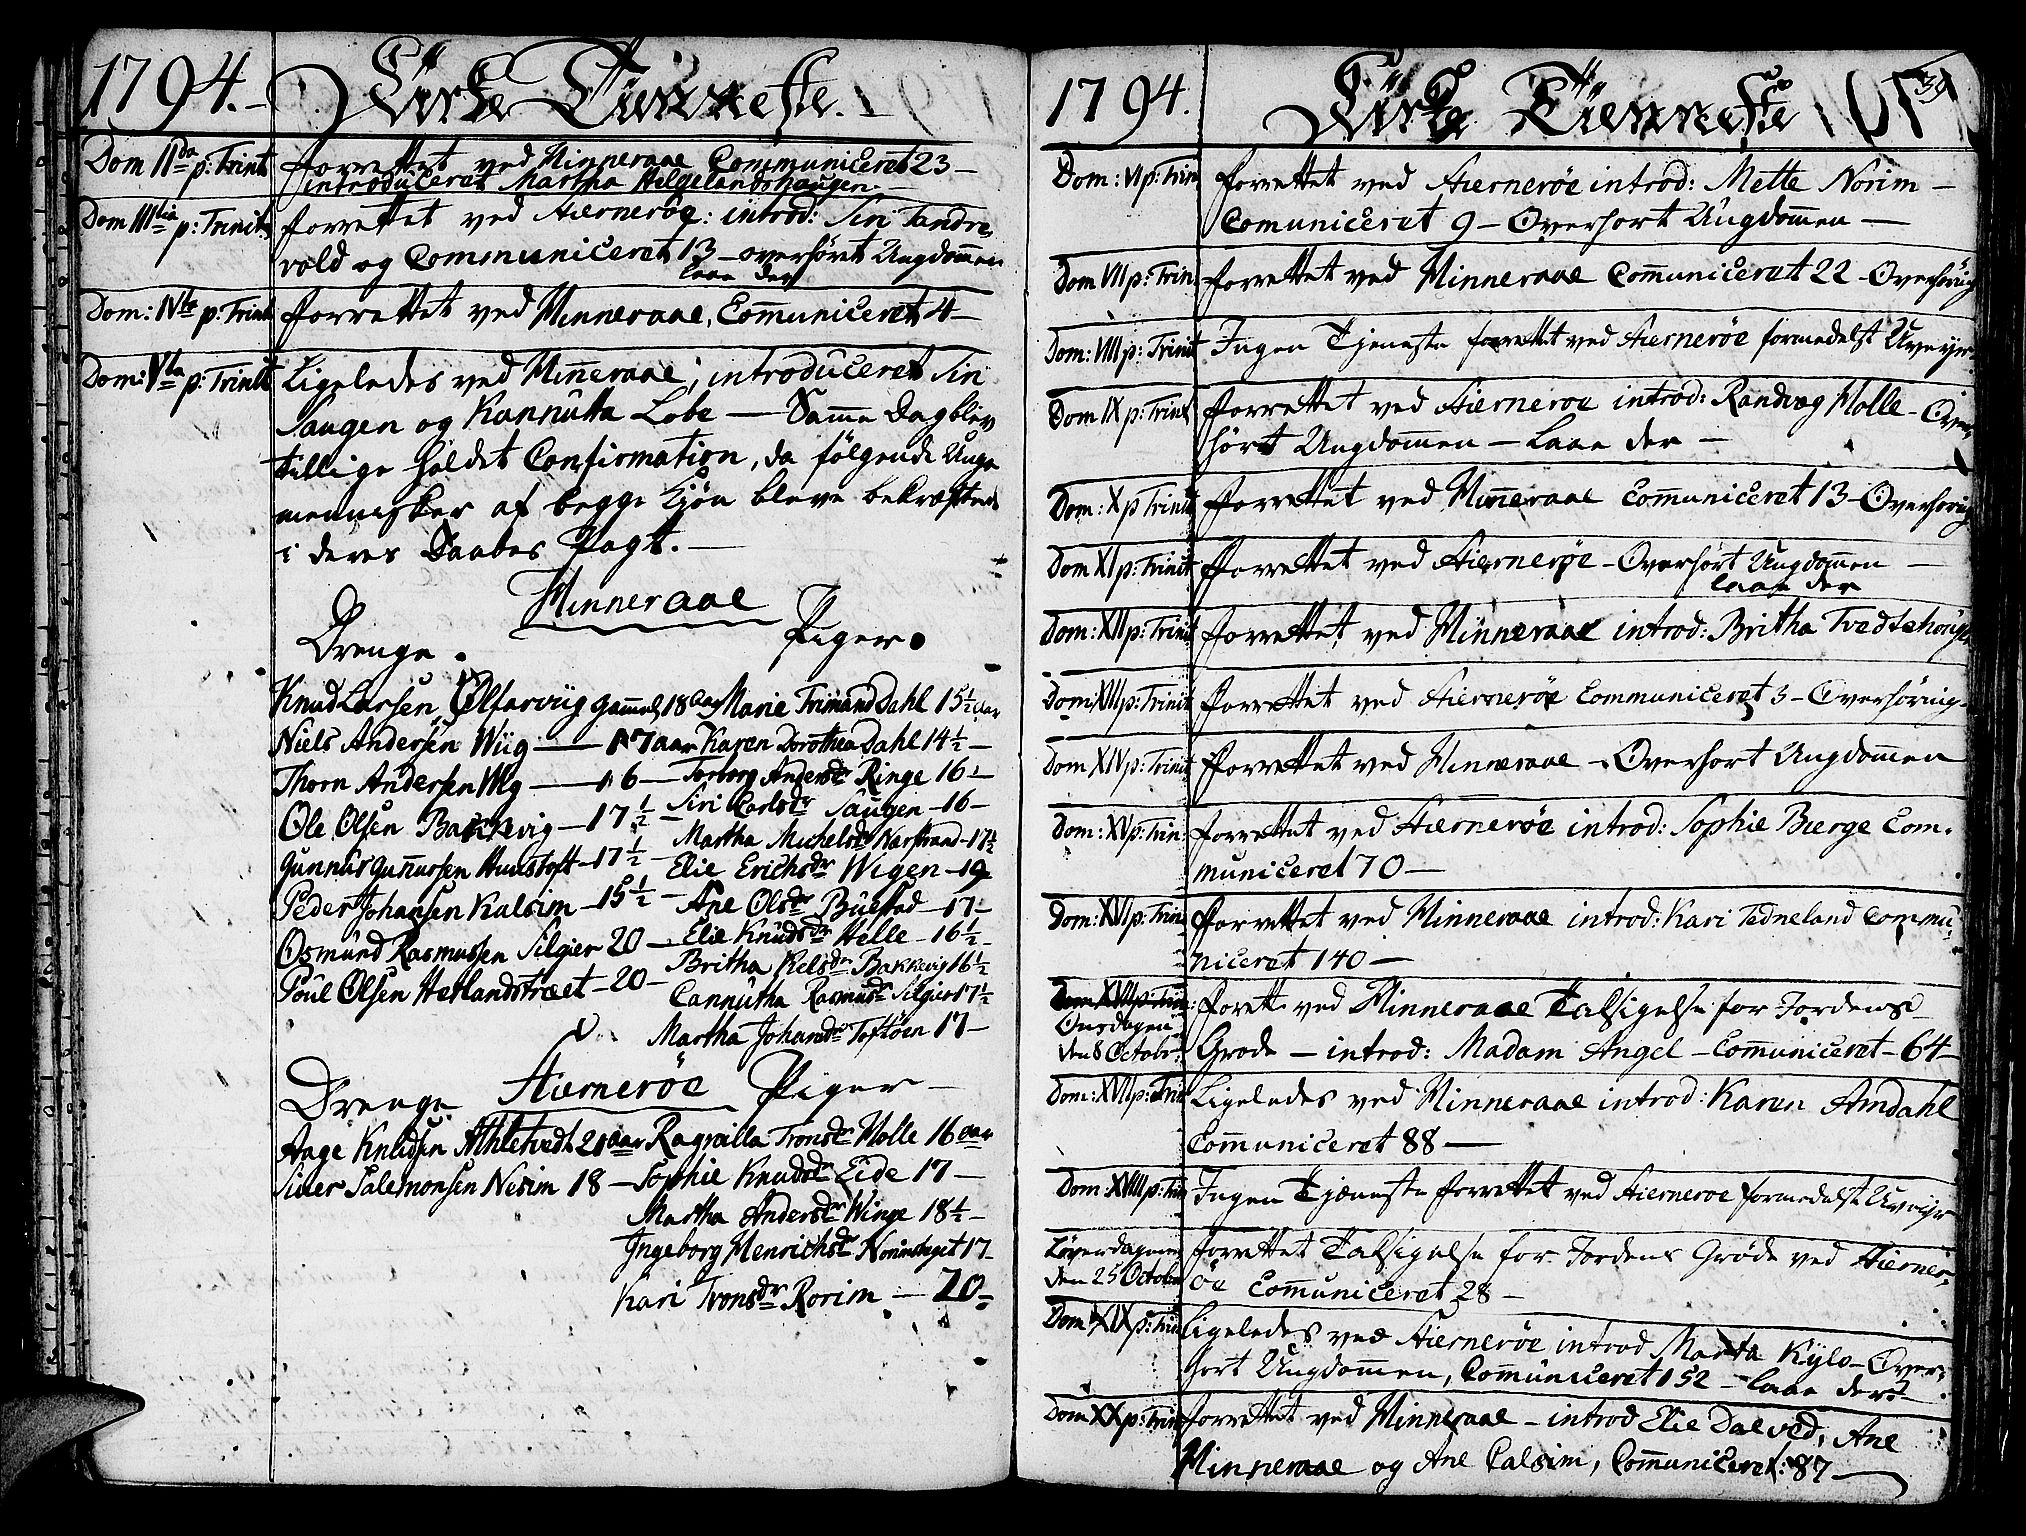 1794.
Kirke Tienneste.
Dom IIda p: Trinit forrettet ved Hinneraae Communiceret 23 —
introduceret Martha Helgelandshaugen. —
Dom IIItia p: Trinit: forrettet ved Hiernerøe: introd: Siri Tandre-
vold og Communiceret 13 — overhørt Ungdommen
laae der
Dom: IVta p: Trinit forrettet ved Hinneraae, Com̄uniceret 4 —
Dom: Vta p: Trinit Ligeledes ved Hin̄eraae, introduceret Siri
Saugen og Kannutta Lobe — Samme Dag blev
tillige holdet Confirmation, da følgende Unge
mennisker af begge Kjøn bleve bekræftede
i deres Daabes Pagt. —
Hinneraae
Drenge. Piger.
Knud Larsen Ølfarviig gammel 18 aar Marie Trimand Dahl 15½ aar
Niels Andersen Wiig — 17 aar Karen Dorothea Dahl 14½ —
Thorn Andersen Wiig — 16 — Torborg Andersdr Ringe 16 —
Ole Olsen Bakkevig — 17½ — Siri Carlsdr Saugen — 16 —
Gunnar Gunnarsen Hunstoft — 17½ — Martha Michelsdr Narstraad — 17½
Elie Erichsdr Wigen — 19
Peder Johansen Kalsim — 15½ — Ane Olsdr Büestad — 17 —
Osmund Rasmussen Silgier 20 — Elie Knudsdr Helle — 16½
Britha Kielsdr Bakkevig 16½
Poul Olsen Hetlandstræet — 20 — Cannutha Rasmusdr Silgier 17½
Martha Johansdr Toftøen 17 —
Hiernerøe
Drenge Piger —
Aage Knudsen Athletvedt 21 aar Ragnilla Tronsdr Molle 16 aar
Siver Salemonsen Nesim 18 — Sophie Knudsdr Eide 17 —
Martha Andersdr Winge 18½ —
Ingeborg Henrichsdr Norimstaget 17 —
Kari Tronsdr Rorim — 20 —
1794.
Kirke Tienneste
39
Dom: VI p: Trin forrettet ved Hiernerøe introd: Mette Norim —
Comuniceret 9 — Overhort Ungdom̄en —
Dom VII p: Trin forrettet ved Hinneraae Com̄uniceret 22 — Overhöriig
Dom: VIII p: Trinit Ingen Tjeneste forrettet ved Hiernerøe formedelst Uveyr
Dom IX p: Trinit forrettet ved Hiernerøe introd: Randvæg Molle — Over-
hørt Ungdom̄en — Laae der —
Dom: X p Trinit forrettet ved Hin̄eraae Com̄uniceret 13 — Overhöriig
Dom XI p: Trinit forrettet ved Hiernerøe — Overhört Ungdom̄en —
laae der
Dom: XII p: Trinit forrettet ved Hinneraae introd: Britha Tvedtehougen
Dom: XIII p: Trinit forrettet ved Hiernerøe Communiceret 3 — Overhöriig —
Dom XIV p: Trinit forrettet ved Hinneraae — Overhort Ungdom̄en
Dom: XV p: Trin: forrettet ved Hiernerøe introd: Sophie Bierge Com-
municeret 70 —
Dom: XVI p: Trin forrettet ved Hinneraae introd: Kari Tedneland Commu-
niceret 140 —
Dom XVII p: Trin:
Onsdagen den 8 Octobr: forrett ved Hinneraae Taksigelse for Jordens
Grøde — introd: Madam Angel — Com̄uniceret — 64 —
Dom: XVII p: Trin Ligeledes ved Hinneraae introd: Karen Amdahl
Com̄uniceret 88 —
Dom XVIII p: Trin Ingen Tjæneste forrettet ved Hiernerøe formedelst Uveiyr
Løverdagen den 25 Octobr forrettet Taksigelse for Jordens Grøde ved Hierner-
øe Com̄uniceret 28 —
Dom XIX p: Trin Ligeledes ved Hiernerøe introd Marta Kylo — Over-
hort Ungdom̄en, Com̄uniceret 152 — laae der.
Dom XX p: Trin forrettet ved Hinneraae — introd Elie Dalved, Ane
Hinneraae og Ane Calsim, Com̄uniceret: 87 —